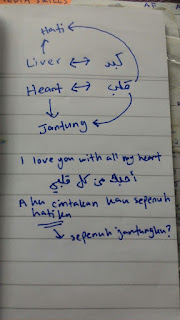 Hati
Liver ↔ كبد
Heart ↔ قلب
Jantung
I love you with all my heart
أحبك من كل قلبي
Aku cintakan kau sepenuh
hatiku
sepenuh jantungku?